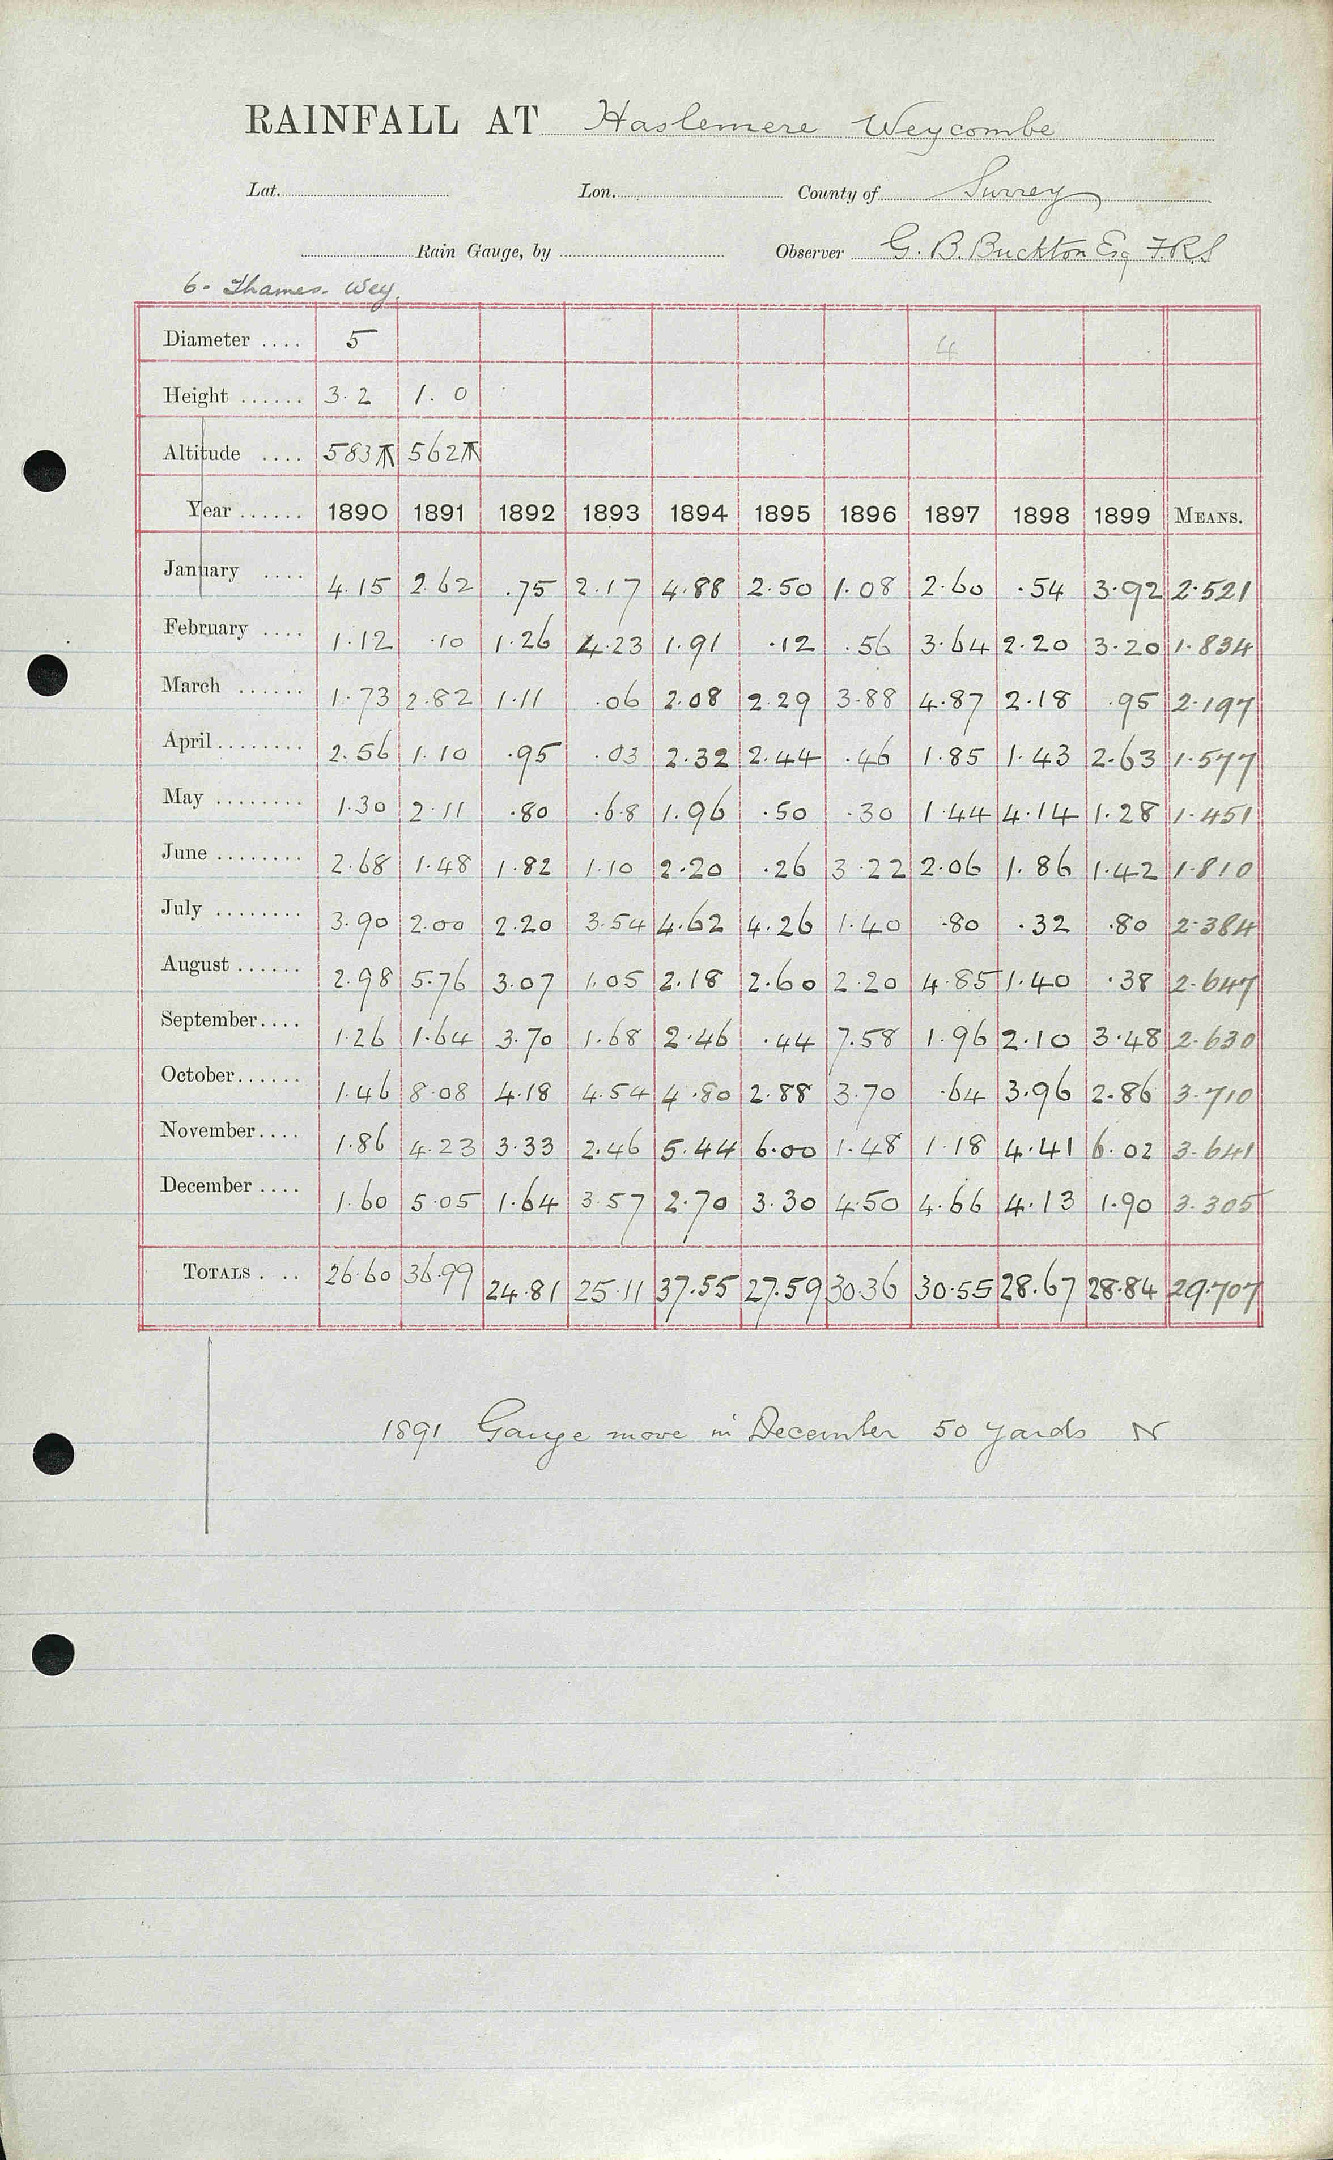 RAINFALL AT Haslemere Weycombe
Lat. Lon. County of Surrey
Rain Gauge, by Observer G. B. Buckton Esq F.R.S
6 - Thames - Wey.
Diameter .... 5 4
Height ...... 3.2 1.0
Altitude .... 583 562
Year ...... 1890 1891 1892 1893 1894 1895 1896 1897 1898 1899 MEANS.
January .... 4.15 2.62 .75 2.17 4.88 2.50 1.08 2.60 .54 3.92 2.521
February .... 1.12 .10 1.26 4.23 1.91 .12 .56 3.64 2.20 3.20 1.834
March ...... 1.73 2.82 1.11 .06 2.08 2.29 3.88 4.87 2.18 .95 2.197
April ........ 2.56 1.10 .95 .03 2.32 2.44 .46 1.85 1.43 2.63 1.577
May ........ 1.30 2.11 .80 .68 1.96 .50 .30 1.44 4.14 1.28 1.451
June ........ 2.68 1.48 1.82 1.10 2.20 .26 3.22 2.06 1.86 1.42 1.810
July ........ 3.90 2.00 2.20 3.54 4.62 4.26 1.40 .80 .32 .80 2.384
August ...... 2.98 5.76 3.07 1.05 2.18 2.60 2.20 4.85 1.40 .38 2.647
September .... 1.26 1.64 3.70 1.68 2.46 .44 7.58 1.96 2.10 3.48 2.630
October ...... 1.46 8.08 4.18 4.54 4.80 2.88 3.70 .64 3.96 2.86 3.710
November .... 1.86 4.23 3.33 2.46 5.44 6.00 1.48 1.18 4.41 6.02 3.641
December .... 1.60 5.05 1.64 3.57 2.70 3.30 4.50 4.66 4.13 1.90 3.305
TOTALS .... 26.60 36.99 24.81 25.11 37.55 27.59 30.36 30.55 28.67 28.84 29.707
1891 Gauge move in December 50 yards N